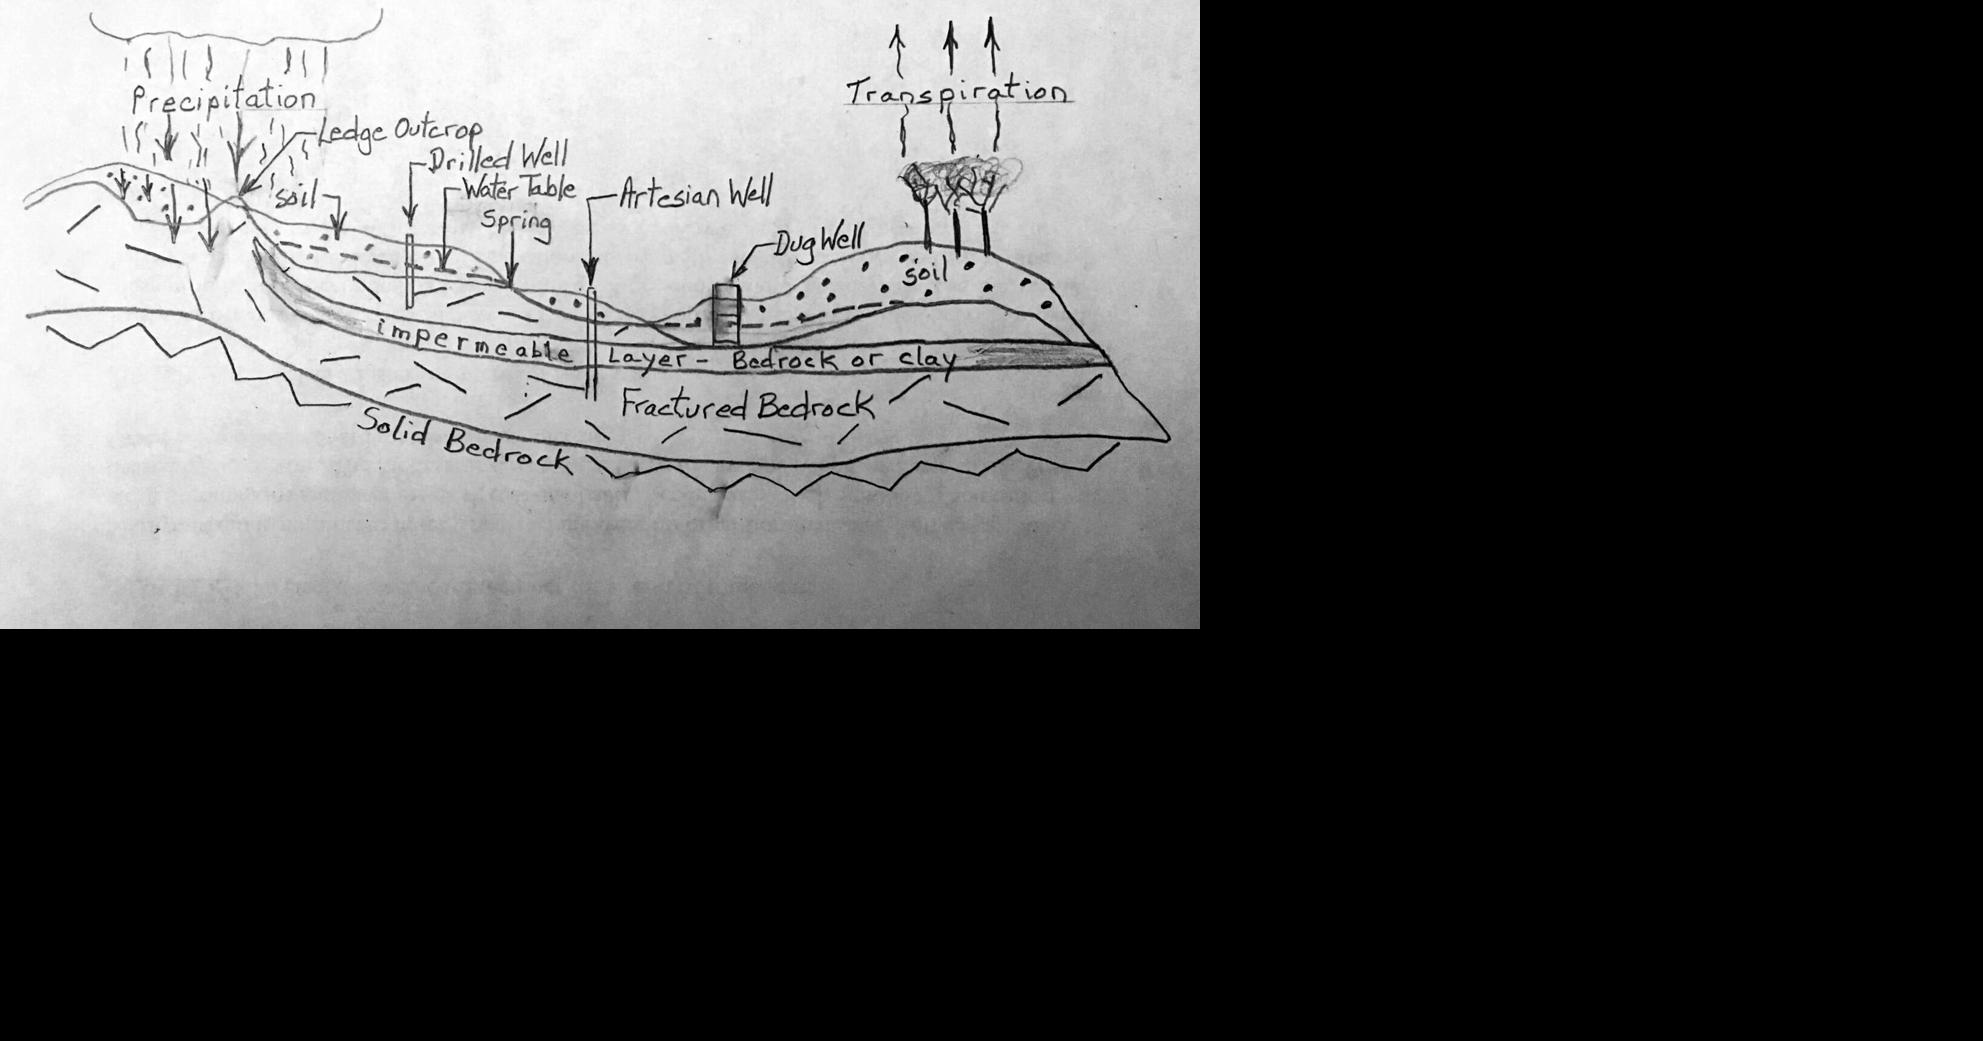 Precipitation
Transpiration
Ledge Outcrop
Drilled Well
Water Table
soil
Artesian Well
Spring
Dug Well
soil
impermeable Layer - Bedrock or clay
Fractured Bedrock
Solid Bedrock